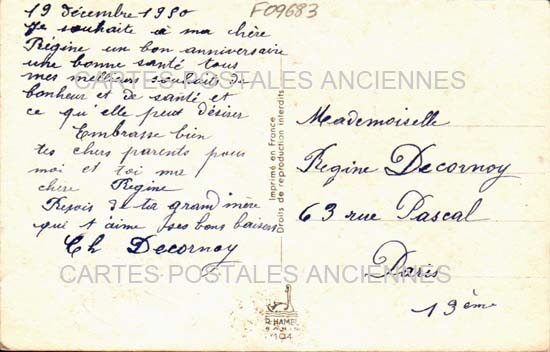 19 décembre 1930
F09683
Je souhaite a ma chère
Régine un bon anniversaire
une bonne santé tous
mes meilleurs souhaits de
bonheur et de santé et
ce qu'elle peut désirer
Embrasse bien
tes chers parents pour
moi et toi ma
chère Régine
Reçois de ta grand'mère
qui t'aime ses bons baisers
Ch Decornoy
CARTES POSTALES ANCIENNES
CARTES POSTALES ANCIENNES
Imprimé en France
Droits de reproduction interdits
Mademoiselle
Régine Decornoy
63 rue Pascal
Paris
13ème
HAMEL
104